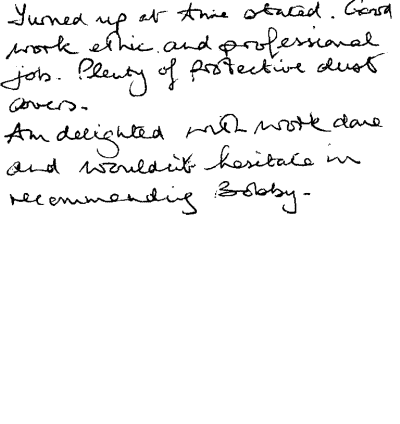 Turned up at time stated. Good
work ethic and professional
job. Plenty of protective dust
covers.
Am delighted with work done
and wouldn't hesitate in
recommending Bobby.